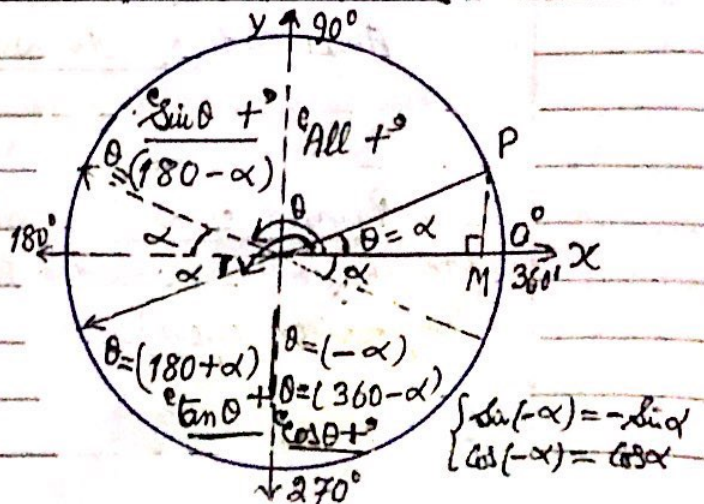 y 90°
"Sin θ +"
"All +"
θ=(180-α)
P
θ
180°
α
θ = α
0°
x
α
α
M
360°
θ=(180+α)
θ=(-α)
"tan θ +"
θ=(360-α)
"Cos θ +"
{ Sin(-α) = -Sin α
{ Cos(-α) = Cos α
270°